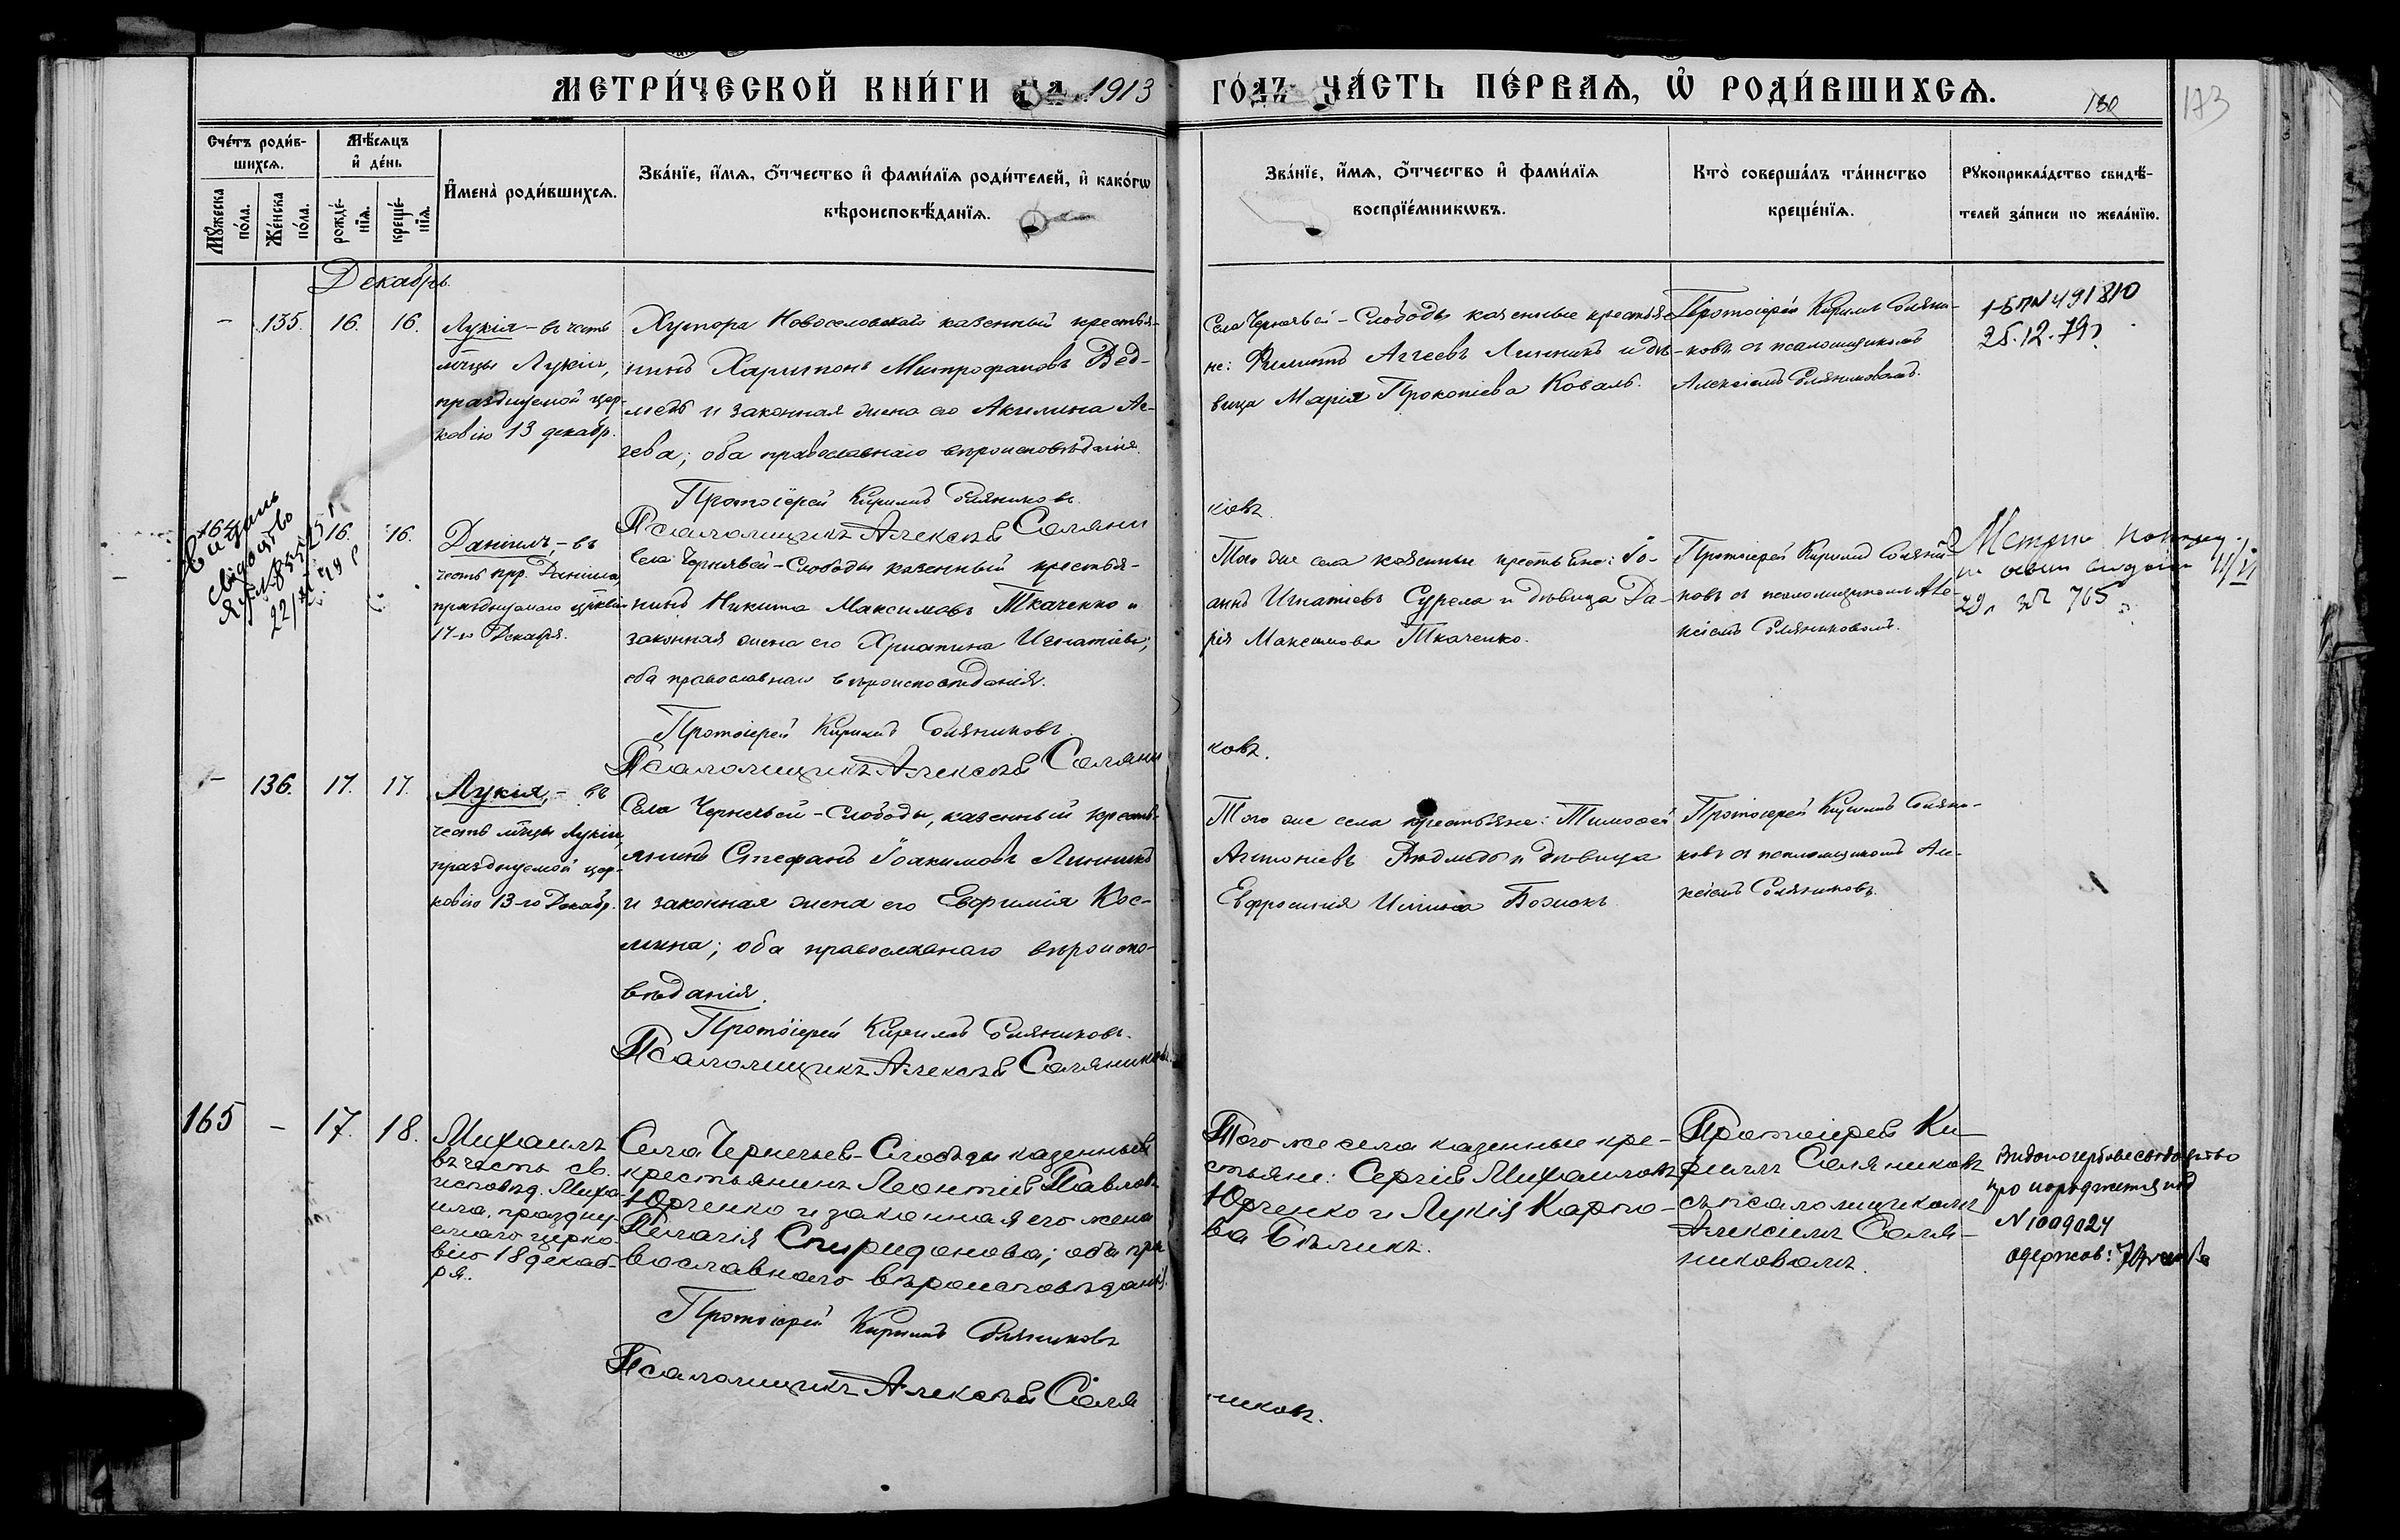 МЕТРИ́ЧЕСКОЙ КНИ́ГИ НА 1913 ГО́ДЪ ЧА́СТЬ ПЕ́РВАѦ, Ѡ҆ РОДИ́ВШИХСѦ.
173
Сче́тъ роди́в-
шихсѧ.
Мѣ́сѧцъ
и҆ де́нь
Мꙋ́жеска
по́ла.
Же́нска
по́ла.
рожде́-
нїѧ.
креще́-
нїѧ.
И҆мена̀ роди́вшихсѧ.
Зва́нїе, и҆́мѧ, ѻ҆́тчество и҆ фами́лїѧ роди́телей, и҆ како́гѡ
вѣроисповѣ́данїѧ.
Зва́нїе, и҆́мѧ, ѻ҆́тчество и҆ фами́лїѧ
воспрїе́мникѡвъ.
Кто̀ соверша́лъ та́инство
креще́нїѧ.
Рꙋкоприкла́дство свидѣ́-
телей за́писи по жела́нїю.
Декабрь
- 135. 16. 16.
Лукія - въ честь
мчцы Лукіи,
празднуемой цер-
ковію 13 декабр.
Хутора Новоселовскаго казенный крестья-
нинъ Харитонъ Митрофановъ Вед-
медь и законная жена его Акилина Аг-
геева; оба православнаго вѣроисповѣданія.
Протоіерей Кириллъ Соляниковъ
Псаломщикъ Алексѣй Соляни
ковъ.
Села Чернечьей-Слободы казенные крестья-
не: Филиппъ Аггеевъ Линникъ и дѣ-
вица Марія Прокопіева Коваль.
Протоіерей Кириллъ Соляни-
ковъ съ псаломщикомъ
Алексіемъ Соляниковымъ.
1-БП №491810
25.12.79г
164 16. 16.
Видано
свідоцтво
Даніилъ, - въ
честь прр. Даніила,
празднуемаго церковію
17-го Декабря.
Села Чернечьей-Слободы казенный крестья-
нинъ Никита Максимовъ Ткаченко и
законная жена его Христина Игнатіева;
оба православнаго вѣроисповѣданія.
Протоіерей Кириллъ Соляниковъ.
Псаломщикъ Алексѣй Соляни
ковъ.
Того же села казенные крестьяне: Іо-
аннъ Игнатіевъ Сурела и дѣвица Да-
рія Максимова Ткаченко.
Протоіерей Кириллъ Соляни-
ковъ съ псаломщикомъ Але-
ксіемъ Соляниковымъ.
765
- 136. 17. 17.
Лукія, - въ
честь мчцы Лукіи,
празднуемой цер-
ковію 13-го Декабр.
Села Чернечьей-Слободы, казенный крестья-
янинъ Стефанъ Іоакимовъ Линникъ
и законная жена его Евфимія Кос-
мина; оба православнаго вѣроиспо-
вѣданія.
Протоіерей Кириллъ Соляниковъ.
Псаломщикъ Алексѣй Соляниковъ.
Того же села крестьяне: Тимофей
Антоніевъ Ведмедь и дѣвица
Евфросинія Илліина Божокъ
Протоіерей Кириллъ Соляни-
ковъ съ псаломщикомъ Але-
ксіемъ Соляниковъ.
165 - 17. 18.
Михаилъ
въ честь св.
исповѣд. Миха-
ила, праздну-
емаго церко-
вію 18 декаб-
ря.
Села Чернечьей-Слободы казенный
крестьянинъ Леонтій Павловъ
Юрченко и законная его жена
Пелагія Спиридонова; оба пра
вославнаго вѣроисповѣданія.
Протоіерей Кириллъ Соляниковъ
Псаломщикъ Алексѣй Соля
никовъ.
Того же села казенные кре-
стьяне: Сергій Михаиловъ
Юрченко и Лукія Карпо-
ва Бѣликъ.
Протоіерей Ки-
риллъ Соляниковъ
съ псаломщикомъ
Алексіемъ Соля-
никовымъ.
Видано гербове свідоцтво
про народження під
№ 1009024
одержав: